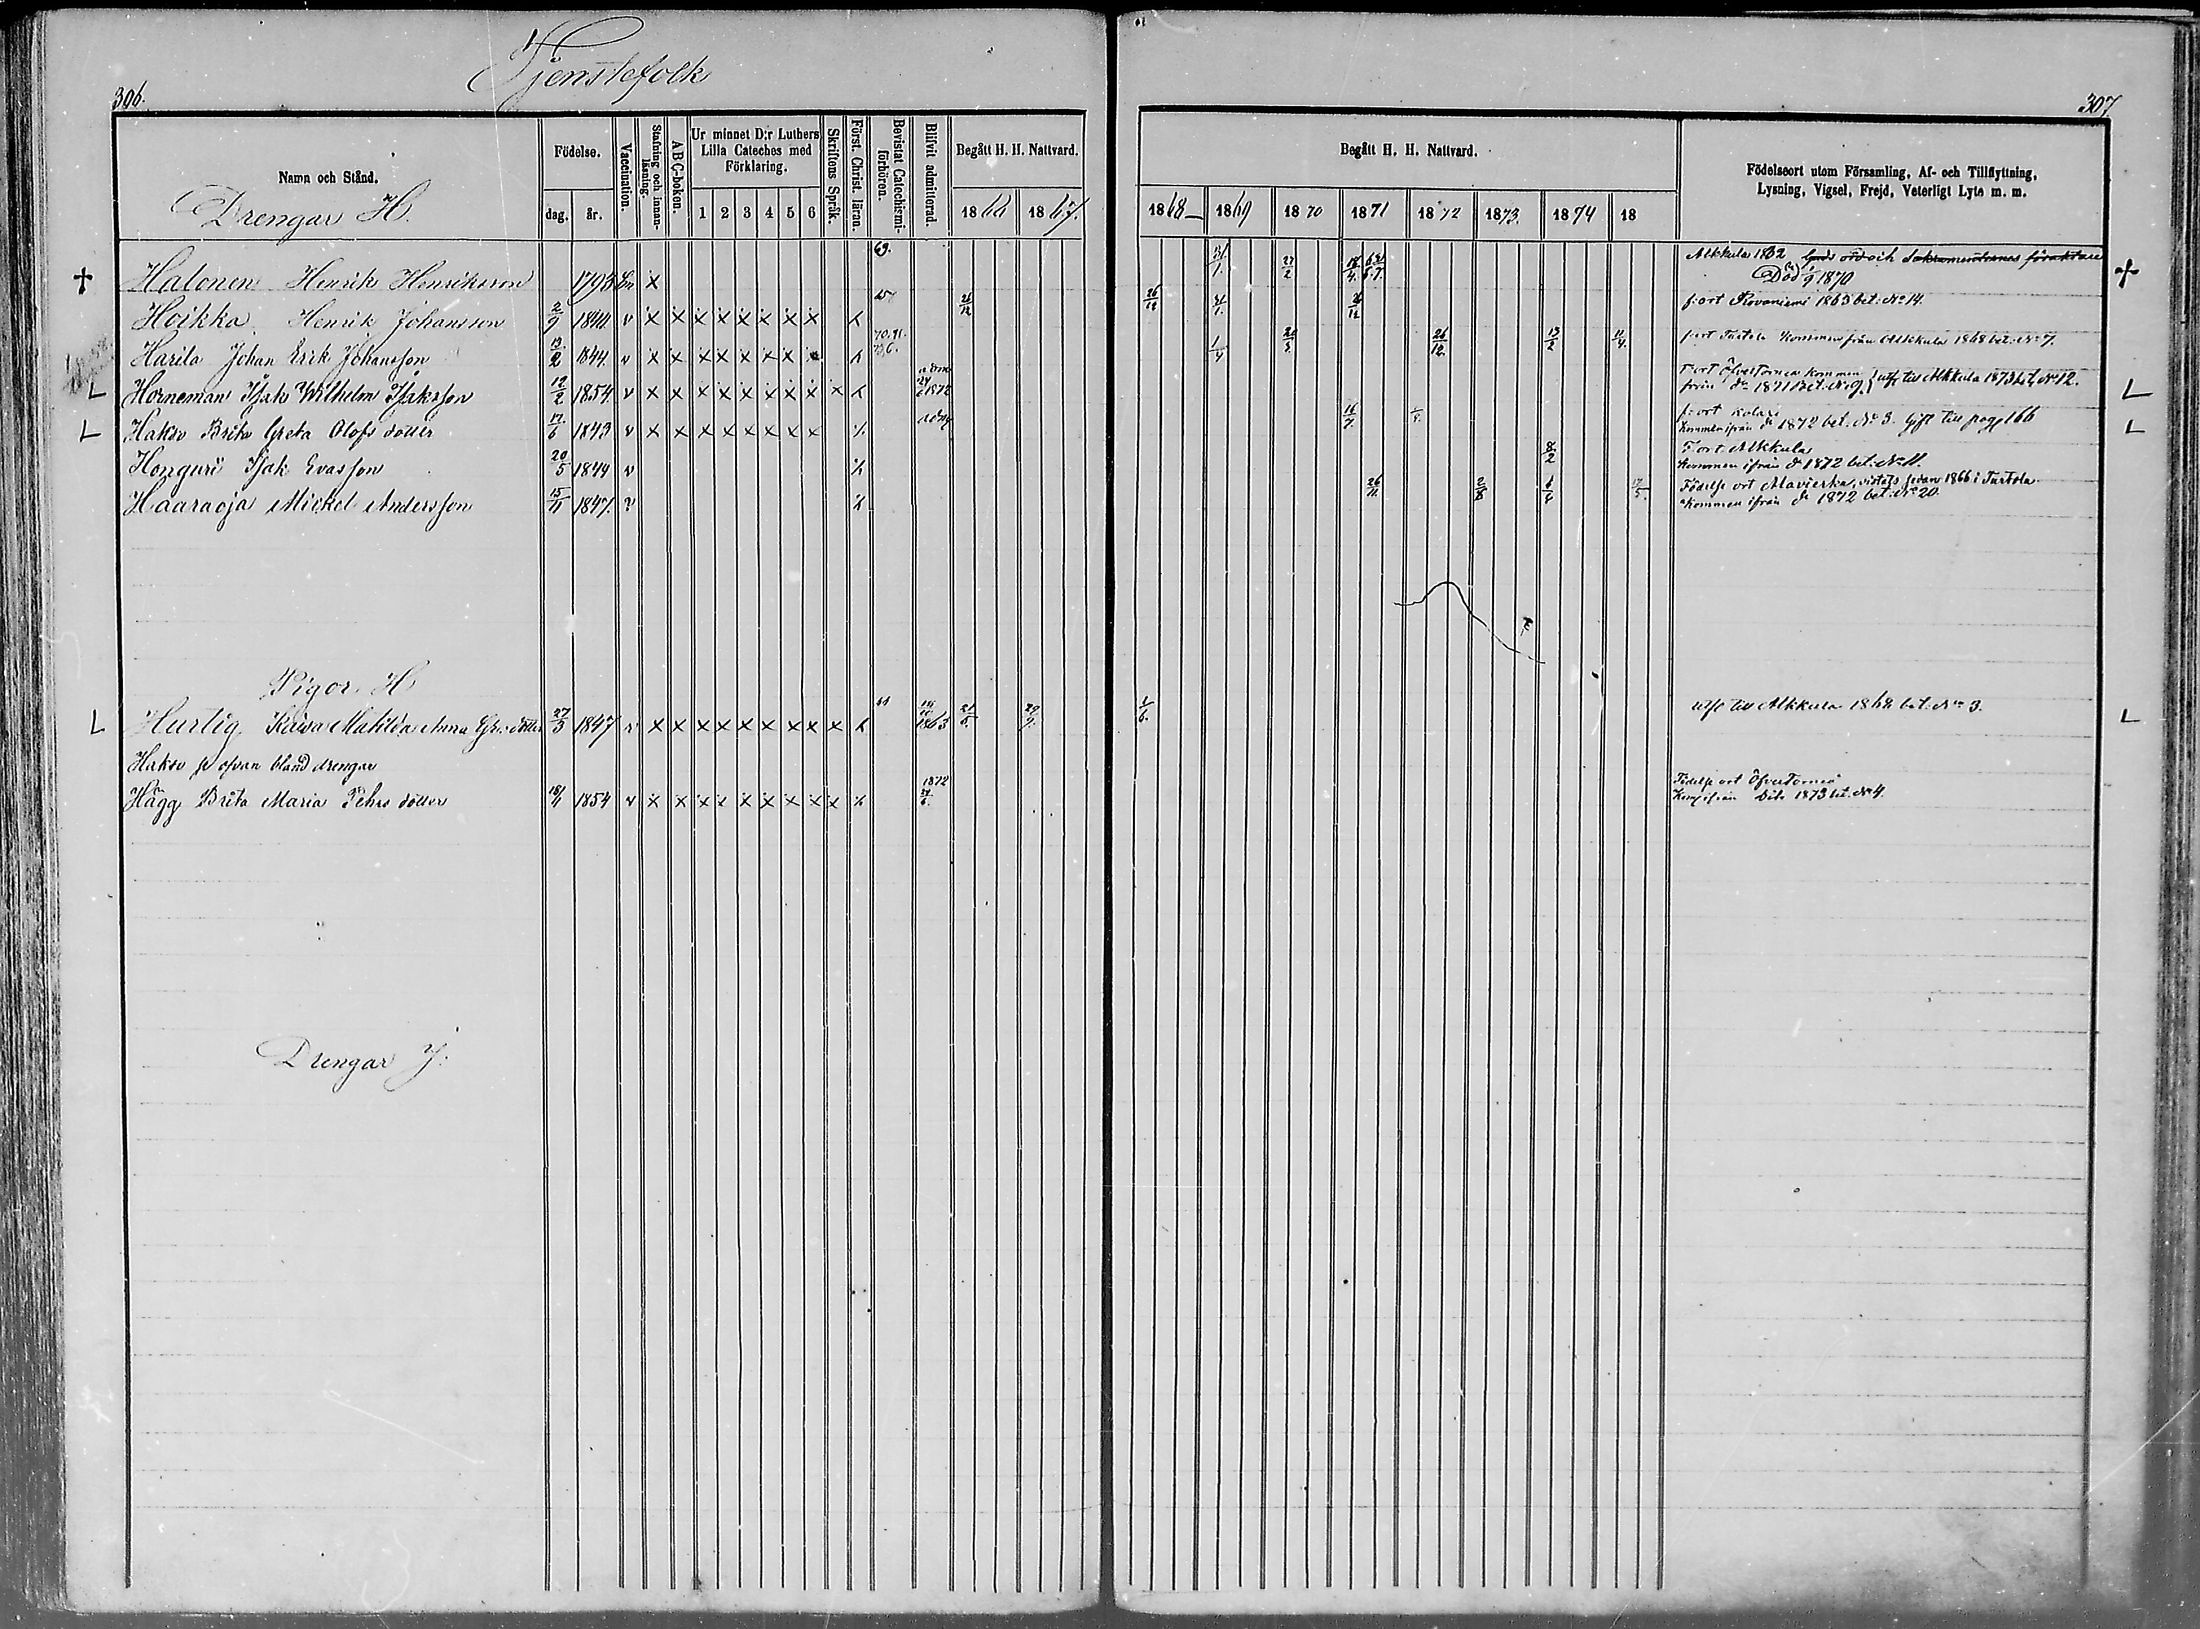 306.
Tjenstefolk
Namn och Stånd.
Drengar H.
Födelse.
dag. år.
Vaccination.
Stafning och innan-läsning.
A-B-C-boken.
Ur minnet D:r Luthers
Lilla Cateches med
Förklaring.
1 2 3 4 5 6
Skriftens Språk.
Först. Christ. läran.
Bevistat Catechismi-förhören.
Blifvit admitterad.
Begått H. H. Nattvard.
1866 1867.
Halonen Henrik Henriksson 1793 x 69.
Hoikka Henrik Johansson 2/9 1844 v x x x x x x x x 26/12
Harila Johan Erik Johansson 13/2 1844. v x x x x x x x 70. 71. 73.
Horneman Isak Wilhelm Isaksson 12/2 1854 v x x x x x x x x x 1872
Hakso Brita Greta Olofs dotter 17/6 1843 v x x x x x x x x
Honguri Isak Evasson 20/5 1844 v
Haaraoja Mickel Andersson 15/11 1847. v
Pigor. H
Hurtig Kaisa Matilda Anna Gr: dotter 27/3 1847 v x x x x x x x x x 1863 21/6. 29/9.
Hakso se ofvan bland drengar
Hägg Brita Maria Pehrs dotter 18/11 1854 v x x x x x x x x x 1872 24/6.
Drengar J:
307
Begått H. H. Nattvard.
1868 1869 1870 1871 1872 1873. 1874 18
Födelseort utom Församling, Af- och Tillflyttning,
Lysning, Vigsel, Frejd, Veterligt Lyte m. m.
31/1. 27/2 Alkkula 1862 Guds ord och Sakramenternas föraktare
Död 1870
26/12 31/1. 26/12 f: ort Rovaniemi 1863 bet: No 14.
1/4 26/12. 13/2 12/4. f: ort Turtola Kommen från Alkkula 1868 bet: No 7.
F: ort Öfvertorneå Kommen
från do 1871 bet: No 9. utfl till Alkkula 1873 bet. No 12.
16/7. f: ort Kolari
Kommen ifrån do 1872 bet. No 3. Gift till pag 166
8/2 F: ort Alkkula
Kommen ifrån do 1872 bet: No 11.
26/11. 2/8 6/4 17/5. Födelse ort Alavieska, vistats sedan 1866 i Turtola
Kommen ifrån do 1872 bet: No 20.
1/6. utfl till Alkkula 1868 bet. No 3.
Födelse ort Öfvertorneå
Kom ifrån Dito 1873 bet. No 4.